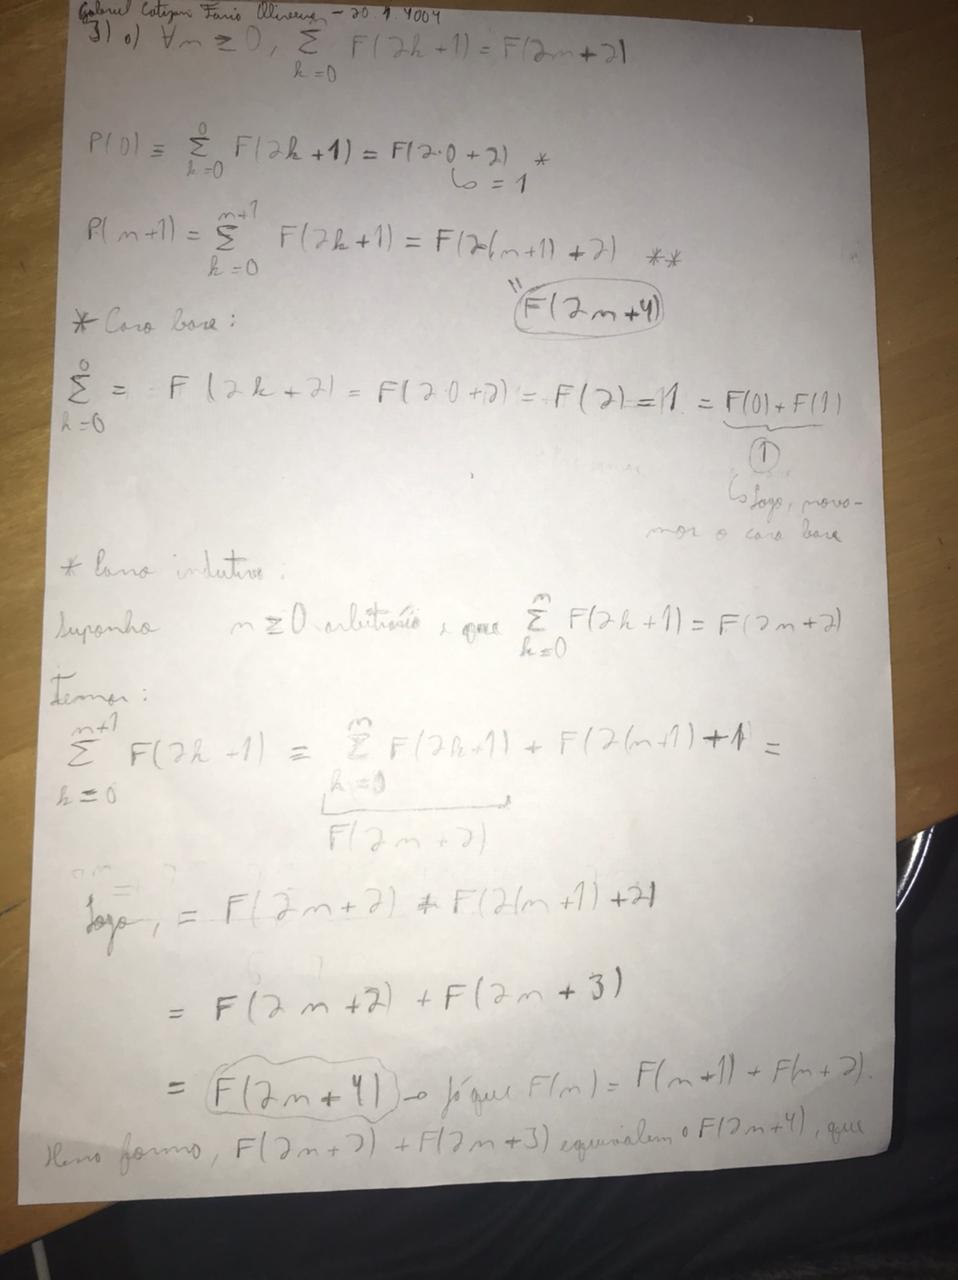 Gabriel Oliveira - 20.1.4004
3) a) ∀n ≥ 0, Σ k=0 F(2k+1) = F(2n+2)
P(0) ≡ 0 Σ k=0 F(2k+1) = F(2·0+2) *
↳ = 1
P(n+1) = n+1 Σ k=0 F(2k+1) = F(2(n+1)+2) **
" F(2n+4)
* Caso base:
0 Σ k=0 = F(2k+2) = F(2·0+2) = F(2) = 1 = F(0)+F(1)
1
↳ logo, prova-
mos o caso base
* Caso indutivo:
Suponha n ≥ 0 arbitrário e que n Σ k=0 F(2k+1) = F(2n+2)
temos:
n+1 Σ k=0 F(2k+1) = n Σ k=0 F(2k+1) + F(2(n+1)+1 =
F(2n+2)
Logo, = F(2n+2) + F(2(n+1)+2)
= F(2n+2) + F(2n+3)
= F(2n+4) → já que F(n) = F(n+1) + F(n+2).
Dessa forma, F(2n+2) + F(2n+3) equivalem a F(2n+4), que